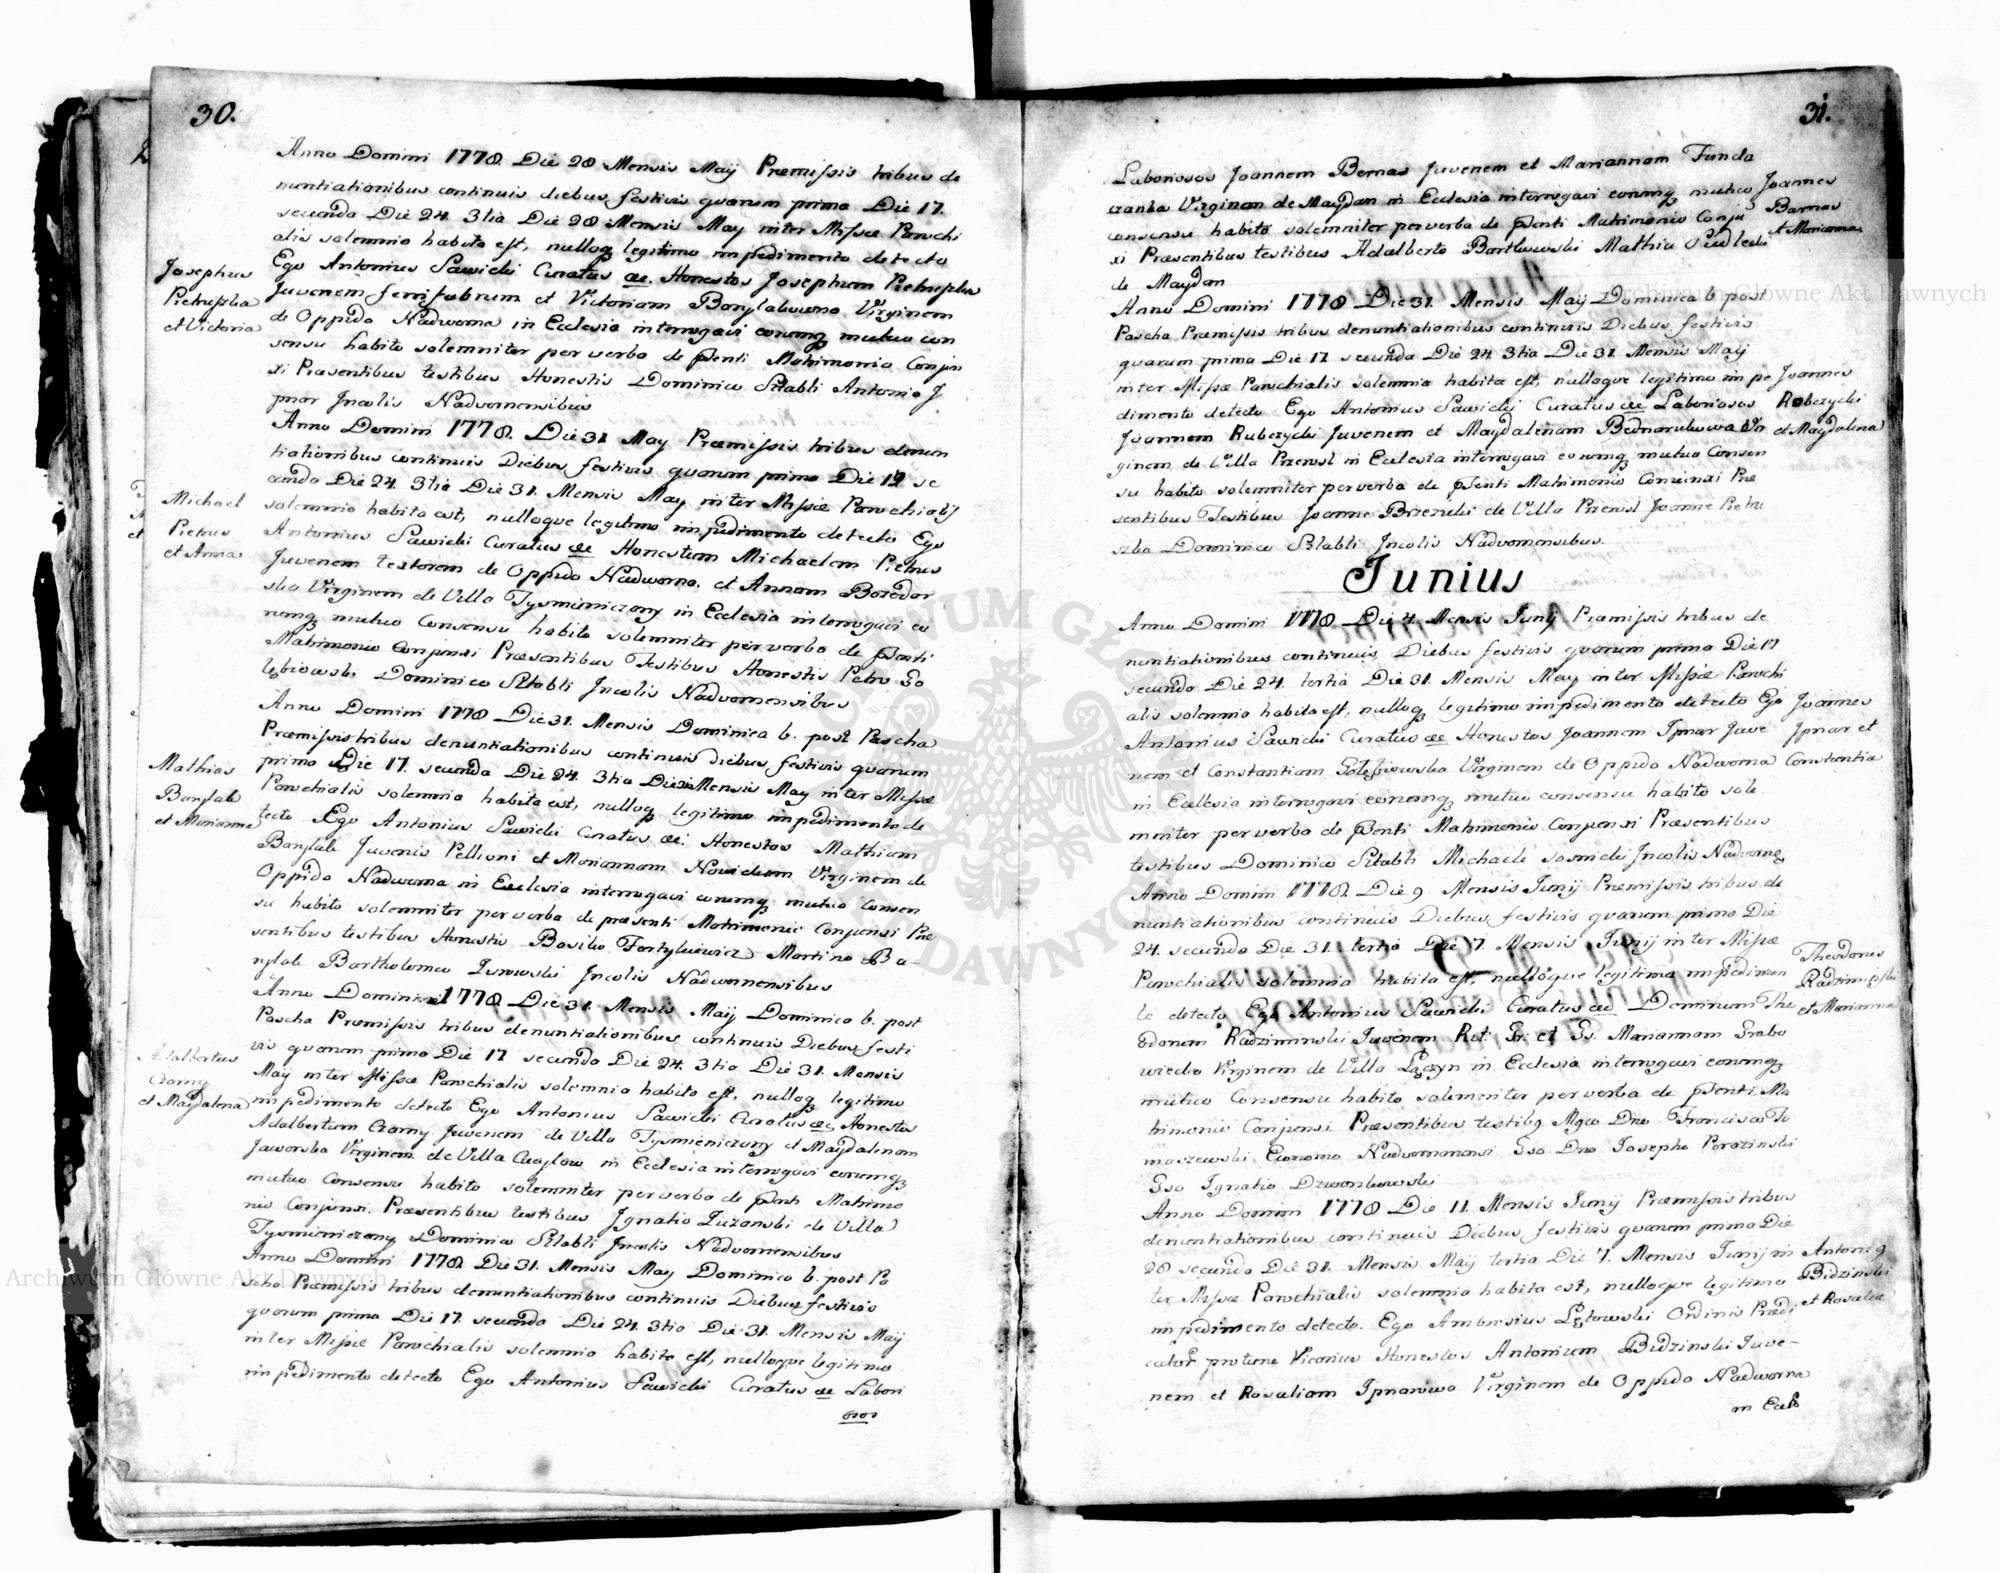 30.
Anno Domini 1778. Die 28 Mensis Maij Premissis tribus de
nuntiationibus continuis diebus festivis quarum prima Die 17.
secunda Die 24. 3tia Die 28 Mensis May inter Missæ Parochi
alis solemnia habita est, nulloq legitimo impedimento detecto
Ego Antonius Sawicki Curatus æc. Honestos Josephum Pietruszka
Juvenem ferrifabrum et Victoriam Virginem
de Oppido Nadworna in Ecclesia interrogavi eorumq mutuo con
sensu habito solemniter per verba de pSenti Matrimonio Conjun
xi Præsentibus testibus Honestis Dominico Sztabli Antonio J
pnar Incolis Nadvornensibus
Josephus
Pietruszka
et Victoria
Anno Domini 1778. Die 31 May Præmissis tribus denun
tiationibus continuis Diebus festivis quarum prima Die 19 se
cunda Die 24. 3tia Die 31. Mensis May inter Missæ Parochialis
solemnia habita est, nulloque legitimo impedimento detecto Ego
Antonius Sawicki Curatus æc Honestum Michaelem Pietrus
Juvenem textorem de Oppido Nadworna. et Annam Bozedar
ska Virginem de Villa Tysmieniczany in Ecclesia interrogavi eo
rumq mutuo Consensu habito solemniter per verba de pSenti
Matrimonio Conjunxi Præsentibus Testibus Honestis Petro Go
łębiowski Dominico Sztabli Incolis Nadvornensibus
Michael
Pietrus
et Anna
Anno Domini 1778 Die 31. Mensis Dominica 6. post Pascha
Præmissis tribus denuntiationibus continuis diebus festivis quarum
prima Die 17. secunda Die 24. 3tia Die 31 Mensis May inter Missæ
Parochialis solemnia habita est, nulloq legitimo impedimento de
tecto Ego Antonius Sawicki Curatus æc. Honestos Mathiam
Banylak Juvenis Pellioni et Mariannam Virginem de
Oppido Nadworna in Ecclesia interrogavi eorumq mutuo Consen
su habito solemniter per verba de præsenti Matrimonio Conjunxi Præ
sentibus testibus Honestis Basilio Martino Ba-
nylak Bartholomeo Incolis Nadwornensibus
Mathias
Banylak
et Marianna
Anno Domini 1778 Die 31. Mensis Maij Dominica 6. post
Pascha Premissis tribus denuntiationibus continuis Diebus festi
vis quarum prima Die 17 secunda Die 24. 3tia Die 31. Mensis
Maij inter Missæ Parochialis solemnia habita est, nulloq legitimo
impedimento detecto Ego Antonius Sawicki Curatus æc Honestos
Adalbertum Czarny Juvenem de Villa Tysmieniczany et Magdalenam
Jaworska Virginem de Villa in Ecclesia interrogavi eorumq
mutuo Consensu habito solemniter per verba de pSenti Matrimo
nio Conjunxi. Præsentibus testibus Ignatio de Villa
Tysmieniczany Dominico Sztabli Incolis Nadvornensibus
Adalbertus
Czarny
et Magdalena
Anno Domini 1778. Die 31. Mensis May Dominica 6. post Pa
scha Præmissis tribus denuntiationibus continuis Diebus festivis
quarum prima Die 17 secunda Die 24. 3tia Die 31. Mensis Maij
inter Missæ Parochialis solemnia habita est, nulloque legitimo
impedimento detecto Ego Antonius Sawicki Curatus æc Labori
osos
31.
Laboriosos Joannem Bernas Juvenem et Mariannam Funda
czanka Virginem de Maydan in Ecclesia interrogavi eorumq mutuo
consensu habito solemniter per verba de pSenti Matrimonio Conju
xi Præsentibus testibus Adalberto Mathia Siedlecki
de Maydan
Joannes
Barnas
et Marianna
Anno Domini 1778 Die 31. Mensis Maij Dominica 6. post
Pascha Præmissis tribus denuntiationibus continuis Diebus festivis
quarum prima Die 17 secunda Die 24 3tia Die 31 Mensis Maij
inter Missæ Parochialis solemnia habita est, nulloque legitimo impe
dimento detecto Ego Antonius Sawicki Curatus æc Laboriosos
Joannem Rubczycki Juvenem et Magdalenam Bednarukowa Vir
ginem de Villa in Ecclesia interrogavi eorumq mutuo Consen
su habito solemniter per verba de pSenti Matrimonio Conjunxi Præ
sentibus Testibus Joanne Brzezicki de Villa Joanne Pietru
szka Dominico Sztabli Incolis Nadvornensibus.
Joannes
Robczycki
et Magdalena
Junius
Anno Domini 1778 Die 4. Mensis Junij Præmissis tribus de
nuntiationibus continuis Diebus festivis quarum prima Die 17
secunda Die 24. tertia Die 31. Mensis May inter Missæ Parochi
alis solemnia habita est, nulloq legitimo impedimento detecto Ego
Antonius Sawicki Curatus æc Honestos Joannem Ipnar Juve
nem et Constantiam Gołębiowska Virginem de Oppido Nadworna
in Ecclesia interrogavi eorumq mutuo consensu habito sole
mniter per verba de pSenti Matrimonio Conjunxi Præsentibus
testibus Dominico Sztabli Michaele Sosnicki Incolis Nadworneq
Joannes
Ipnar et
Constantia
Anno Domini 1778. Die 9 Mensis Junij Premissis tribus de
nuntiationibus continuis Diebus festivis quarum prima Die
24. secunda Die 31. tertia Die 7 Mensis Junij inter Missæ
Parochialis solemnia habita est, nulloque legitimo impedimen
to detecto Ego Antonius Sawicki Curatus æc Dominum The
odorum Radziminski Juvenem Rit. Gr. et Gs. Mariannam Grabo
wiecka Virginem de Villa Łączyn in Ecclesia interrogavi eorumq
mutuo Consensu habito solemniter per verba de pSenti Ma
trimonio Conjunxi Præsentibus testibq Mgco Dno Francisco To
maszewski Economo Nadwornensi Gso Dno Josepho Parazinski
Gso Ignatio Dzwonkowski
Theodorus
Radziminski
et Marianna
Anno Domini 1778 Die 11. Mensis Junij Præmissis tribus
denuntiationibus continuis Diebus festivis quarum prima Die
28 secunda Die 31. Mensis Maij tertia Die 7. Mensis Junij in
ter Missæ Parochialis solemnia habita est, nulloque legitimo
impedimento detecto. Ego Ambrosius Łętowski Ordinis Prædi
cator protunc Vicarius Honestos Antonium Bidzinski Juve-
nem et Rosaliam Ipnarowa Virginem de Oppido Nadworna
in Eccls
Antoni9
Bidzinski
et Rosalia
Archiwum Główne Akt Dawnych
Archiwum Główne Akt Dawnych
ARCHIWUM GŁÓWNE AKT DAWNYCH